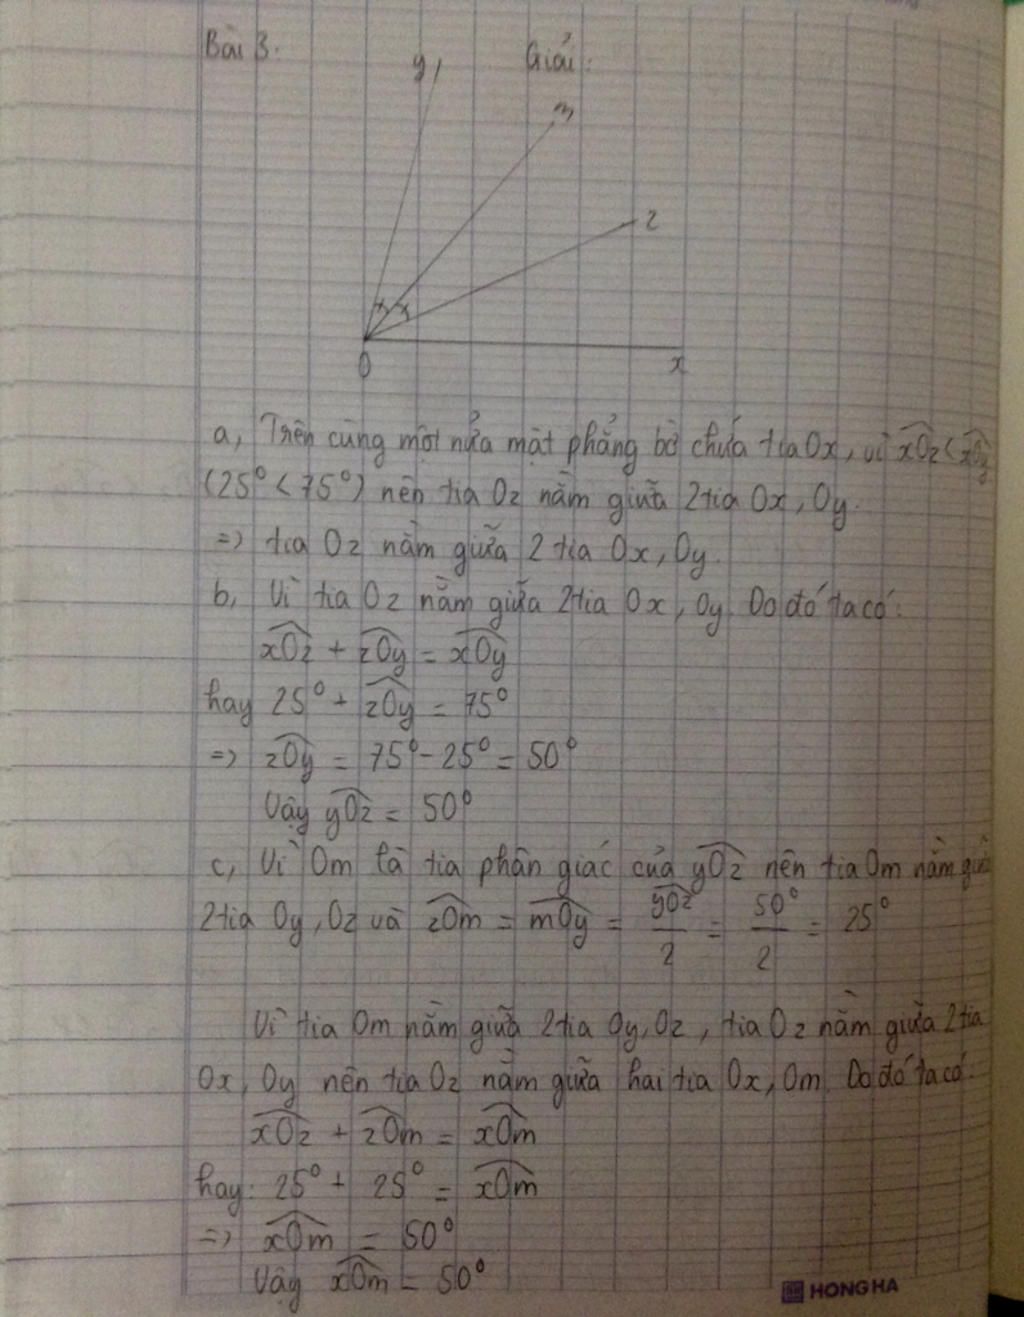 Bài 3.
Giải:
y
m
z
O
x
a, Trên cùng một nửa mặt phẳng bờ chứa tia Ox, vì xOz < xOy
(25° < 75°) nên tia Oz nằm giữa 2 tia Ox, Oy.
=> tia Oz nằm giữa 2 tia Ox, Oy.
b, Vì tia Oz nằm giữa 2 tia Ox, Oy. Do đó ta có:
xOz + zOy = xOy
hay 25° + zOy = 75°
=> zOy = 75° - 25° = 50°
Vậy yOz = 50°
c, Vì Om là tia phân giác của yOz nên tia Om nằm giữa
2 tia Oy, Oz và zOm = mOy = yOz/2 = 50°/2 = 25°
Vì tia Om nằm giữa 2 tia Oy, Oz, tia Oz nằm giữa 2 tia
Ox, Oy nên tia Oz nằm giữa hai tia Ox, Om. Do đó ta có:
xOz + zOm = xOm
hay: 25° + 25° = xOm
=> xOm = 50°
Vậy xOm = 50°
HONG HA